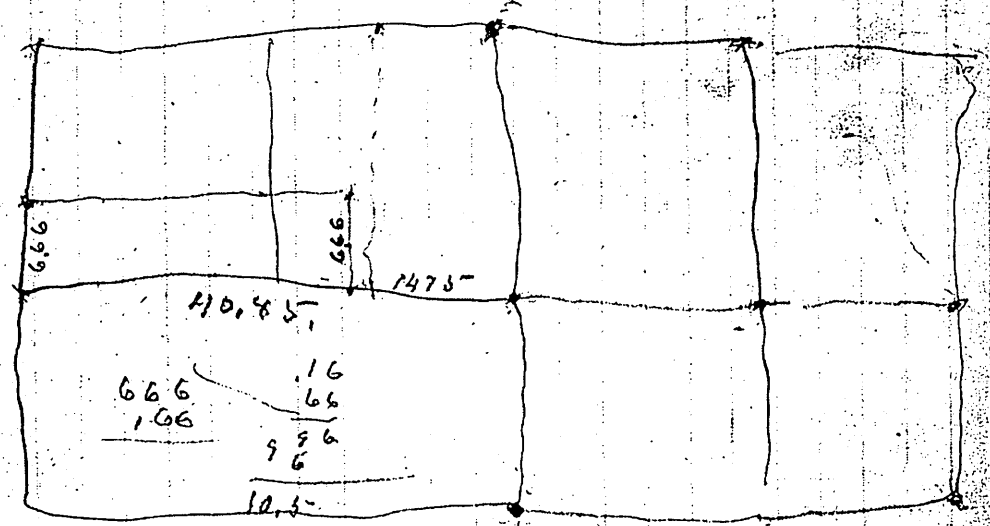 6.66
666
1475
40.45.
666
.66
.16
66
996
6
10.5